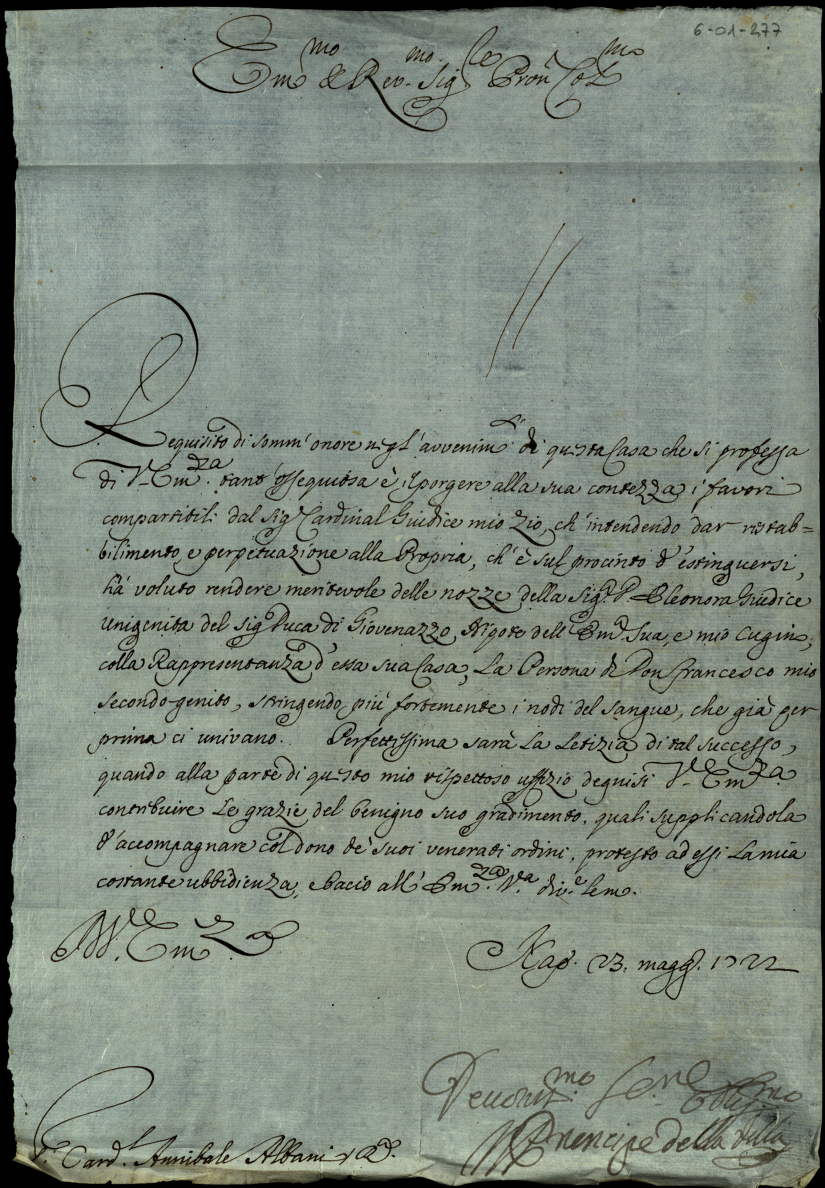 6-01-277
Em^mo & Rev^mo Sig^re Pron Col^mo
Requisito di somm'onore negl'avvenim^ti di questa Casa che si professa
di V^ra Em^za tant'ossequiosa è il porgere alla sua contezza i favori
compartitili dal Sig^r Cardinal Giudice mio Zio, ch'intendendo dar ristab=
bilimento, e perpetuazione alla Propria, ch'è sul procinto d'estinguersi,
hà voluto rendere meritevole delle nozze della Sig^ra D. Eleonora Giudice
unigenita del Sig^r Duca di Giovenazzo, Nipote dell'Em^a Sua, e mio Cugino,
colla Rappresentanza d'essa sua Casa, La Persona di Don Francesco mio
secondo-genito, stringendo più fortemente i nodi del sangue, che già per
prima ci univano. Perfettissima sarà La Letizia di tal successo,
quando alla parte di questo mio rispettoso uffizio degnisi V^ra Em^za
contribuire Le grazie del benigno suo gradimento, quali supplicandola
d'accompagnare col dono de' suoi venerati ordini, protesto ad essi La mia
costante ubbidienza, e bacio all'Em^za V^a div^te Lem.
Di V^ra Em^za
Nap. 23. magg. 1722
Devotis^mo Ser^re Oblig^mo
Il Prencipe della
S^r Card^l Annibale Albani